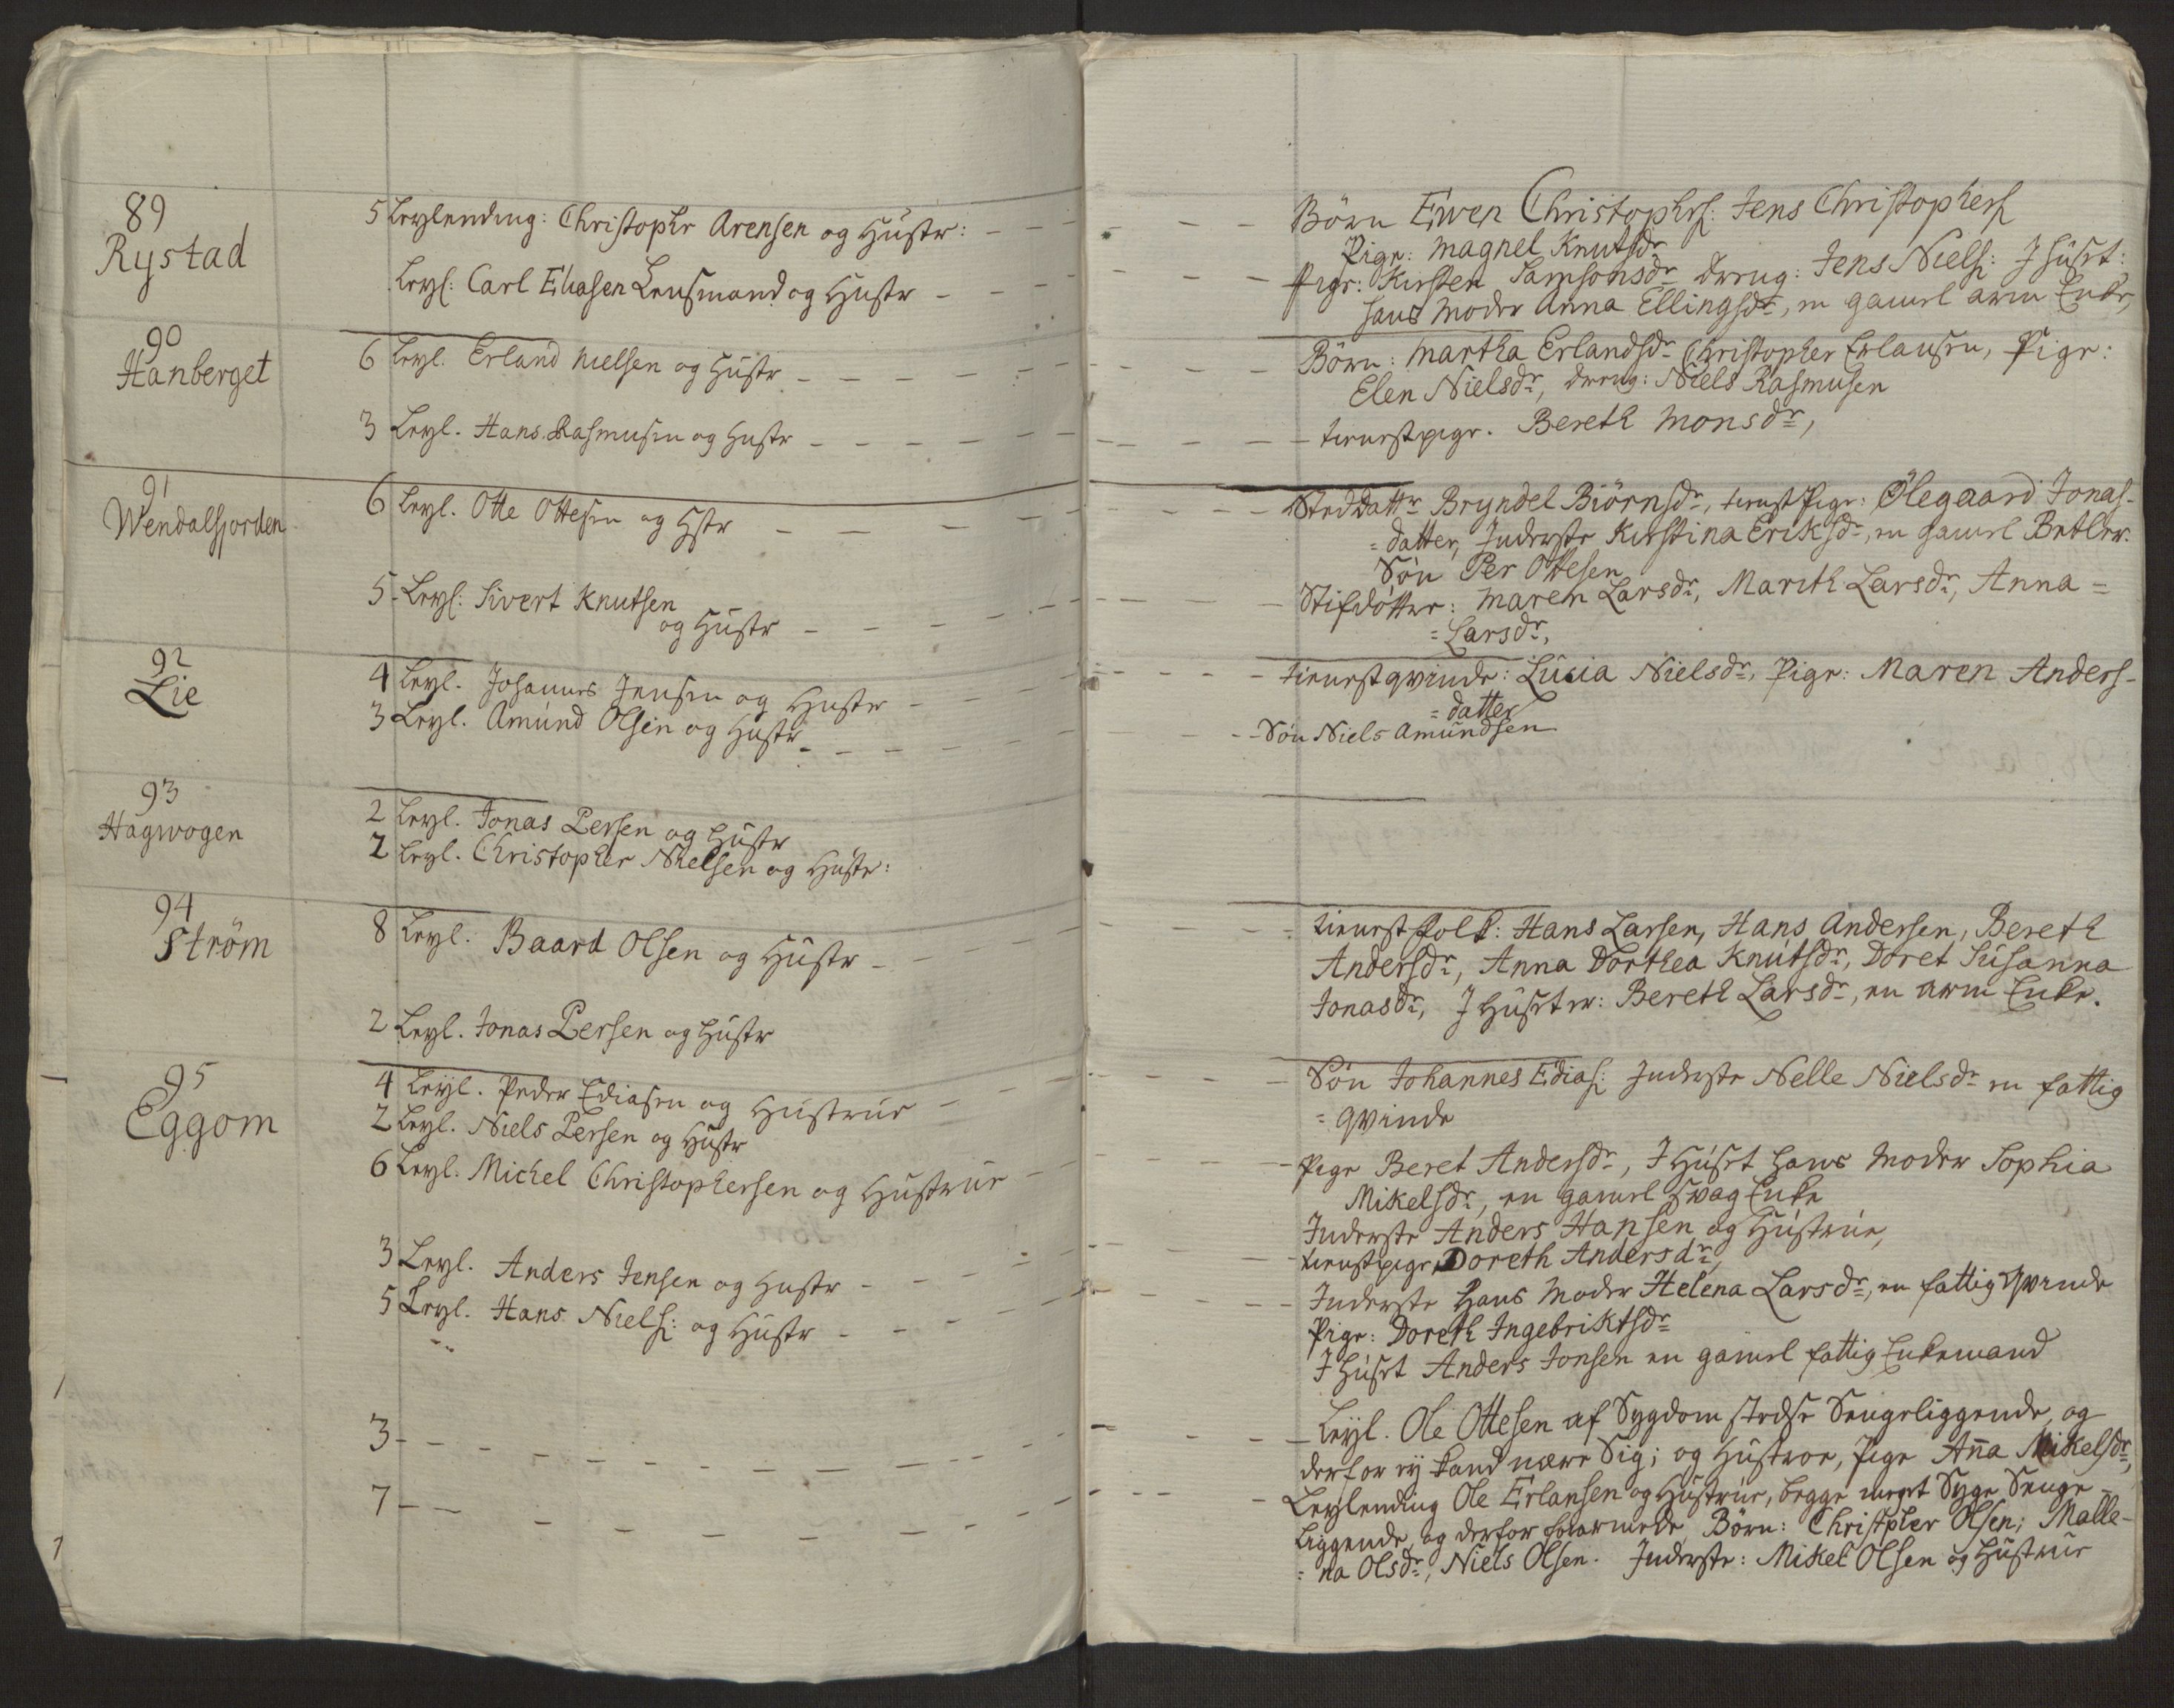 89
Rystad
5 Leylending: Christopher Arensen og Hustr:
Leyl: Carl Eliasen Lensmand og Hustr
90
Hanberget
6 Leyl. Erland Nielsen og Hustr
3 Leyl. Hans Rasmusen og Hustr
91
Wendalsjorden
6 Leyl. Otte Ottesen og Hstr
5 Leyl: Sivert Knutsen
og Hustr
92
Lie
4 Leyl. Johannes Jensen og Hustr
3 Leyl. Amund Olsen og Hustr
93
Hagwogen
2 Leyl. Jonas Persen og Hustr
2 Leyl. Christopher Nielsen og Hustr:
94
Ström
8 Leyl. Baard Olsen og Hustr
2 Leyl. Jonas Persen og Hustr
95
Eggom
4 Leyl. Peder Ediasen og Hustrue
2 Leyl. Niels Persen og Hustr
6 Leyl. Michel Christophersen og Hustrue
3 Leyl. Anders Jensen og Hustr
5 Leyl. Hans Niels: og Hustr
3
7
Börn Ewen Christophers: Jens Christophers
Pige: Magnel Knutsdr
Pige: Kirsten Samsonsdr Dreng: Jens Niels: I Huset:
hans Moder Anna Ellingsdr, en gamel arm Enke,
Börn: Martha Erlandsdr Christopher Erlansen, Pige:
Elen Nielsdr, Dreng: Niels Rasmusen
tienestpige. Bereth Monsdr,
Steddatter Bryndel Biörnsdr, tienest Pige: Olegaard Jonas-
=datter, Inderste Kirstina Eriksdr, en gamel Betler.
Sön Per Ottesen
Stifdötter: Maren Larsdr, Marith Larsdr, Anna =
=Larsdr,
tienestqvinde: Lusia Nielsdr, Pige: Maren Anders-
=datter
Sön Niels Amundsen
tienestfolk: Hans Larsen, Hans Andersen, Bereth
Andersdr, Anna Dorthea Knutsdr, Doret Susanna
Jonasdr, I Huset er: Bereth Larsdr, en arm Enke.
Sön Johannes Edias: Inderste Nelle Nielsdr en fattig
=qvinde
Pige Beret Andersdr, I Huset hans Moder Sophia
Mikelsdr, en gamel svag Enke
Inderste Anders Hansen og Hustrue,
tienestpige Doreth Andersdr,
Inderste Hans Moder Helena Larsdr, en fattig qvinde
Pige: Doreth Ingebriktsdr
I Huset Anders Jonsen en gamel fattig Enkemand
Leyl. Ole Ottesen af Sygdom stedse Sengeliggende, og
derfor ey kand nære Sig; og Hustroe, Pige Anna Mikelsdr,
Leylending Ole Erlansen og Hustrue, begge meget Syge Senge-
liggende, og derfor forarmede, Börn: Christpher Olsen; Malle-
=na Olsdr, Niels Olsen. Inderste: Mikel Olsen og Hustrue